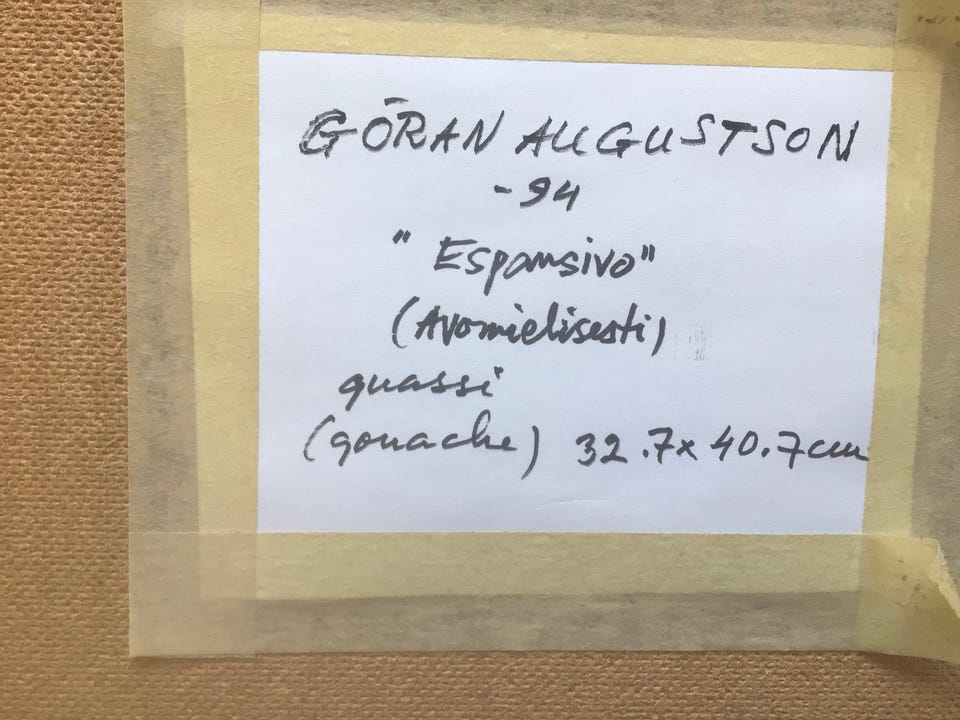 GÖRAN AUGUSTSON
-94
"Espansivo"
(Avomielisesti)
guassi
(gouache) 32.7x40.7cm